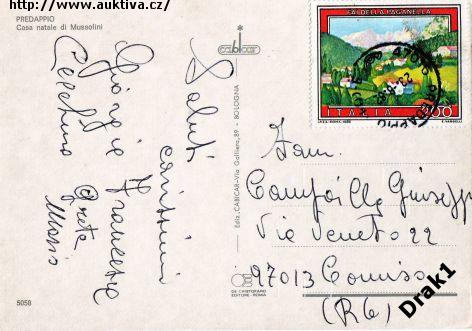 http://www.auktiva.cz/
PREDAPPIO
Casa natale di Mussolini
cabicar
FAI DELLA PAGANELLA
ITALIA 200
Saluti
carissimi
Giorgio Francesca
Greta
Mario
Ediz. CABICAR - Via Galliera, 89 - BOLOGNA
DE CRISTOFARO
EDITORE - ROMA
Fam
Campailla Giuseppe
Via Veneto 22
97013 Comiso
(RG)
5058
Drak1